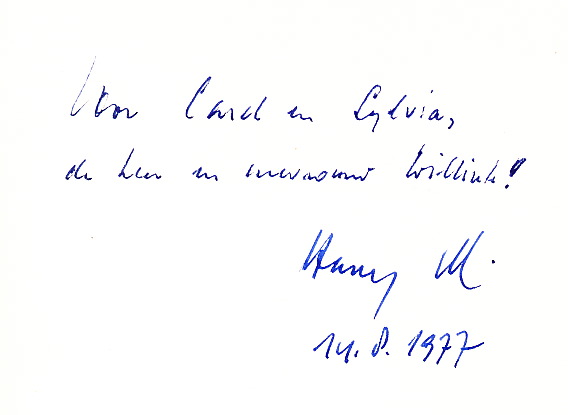 Voor Carel en Sylvia,
de heer en mevrouw Willink!
Harry M.
14.8.1977